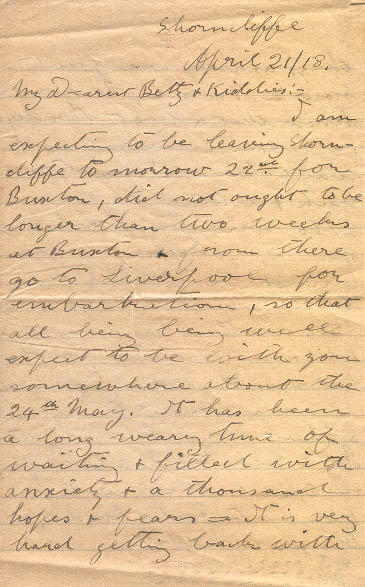 Shorncliffe
April 21/18.
My Dearest Betty & Kiddies:-
I am
expecting to be leaving Shorn-
cliffe to morrow 22nd for
Buxton, did not ought to be
longer than two weeks
at Buxton & from there
go to Liverpool for
embarkation, so that
all being being well
expect to be with you
somewhere about the
24th May. It has been
a long weary time of
waiting & filled with
anxiety & a thousand
hopes & fears - It is very
hard getting back with